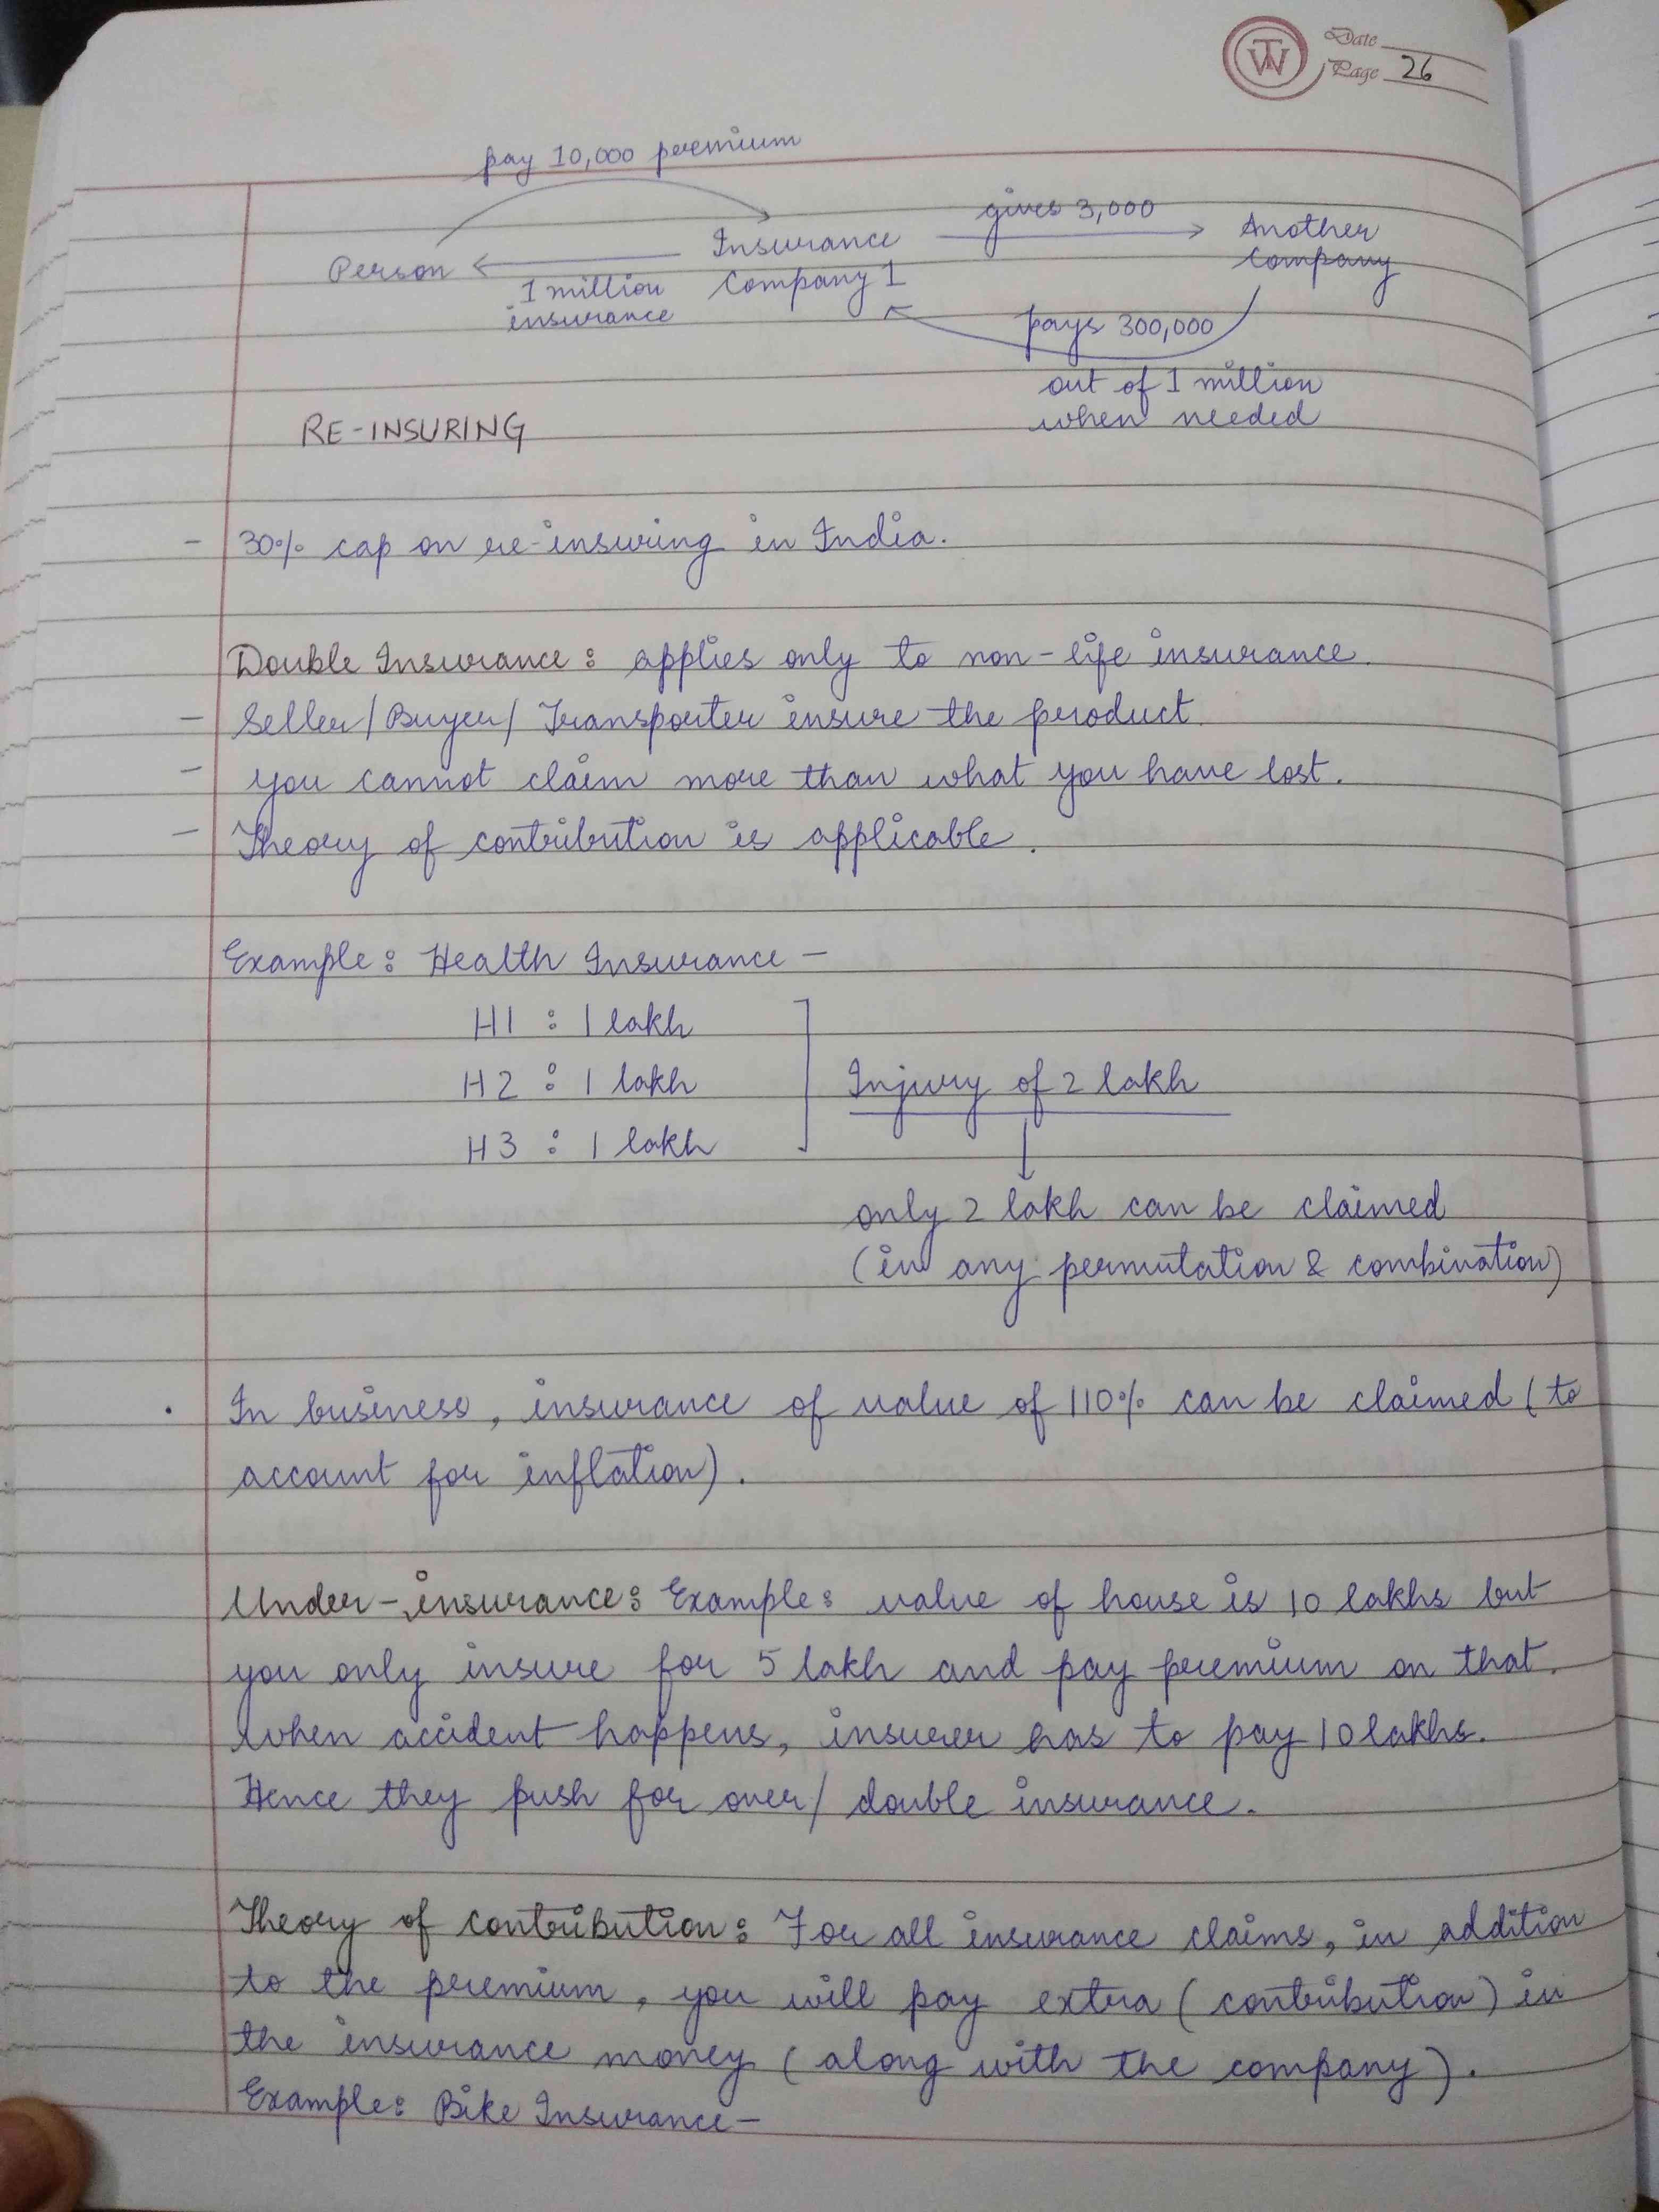 TW
Date
Page 26
pay 10,000 premium
Person
1 million
insurance
Insurance
Company 1
gives 3,000
Another
Company
pays 300,000
out of 1 million
when needed
RE-INSURING
- 30% cap on re-insuring in India.
Double Insurance: applies only to non-life insurance.
- Seller/Buyer/Transporter insure the product.
- you cannot claim more than what you have lost.
- Theory of contribution is applicable.
Example: Health Insurance -
H1 : 1 lakh
H2 : 1 lakh
H3 : 1 lakh
Injury of 2 lakh
only 2 lakh can be claimed
(in any permutation & combination)
. In business, insurance of value of 110% can be claimed (to
account for inflation).
Under-insurance: Example: value of house is 10 lakhs but
you only insure for 5 lakh and pay premium on that.
when accident happens, insurer has to pay 10 lakhs.
Hence they push for over/double insurance.
Theory of contribution: For all insurance claims, in addition
to the premium, you will pay extra (contribution) in
the insurance money (along with the company).
Example: Bike Insurance-